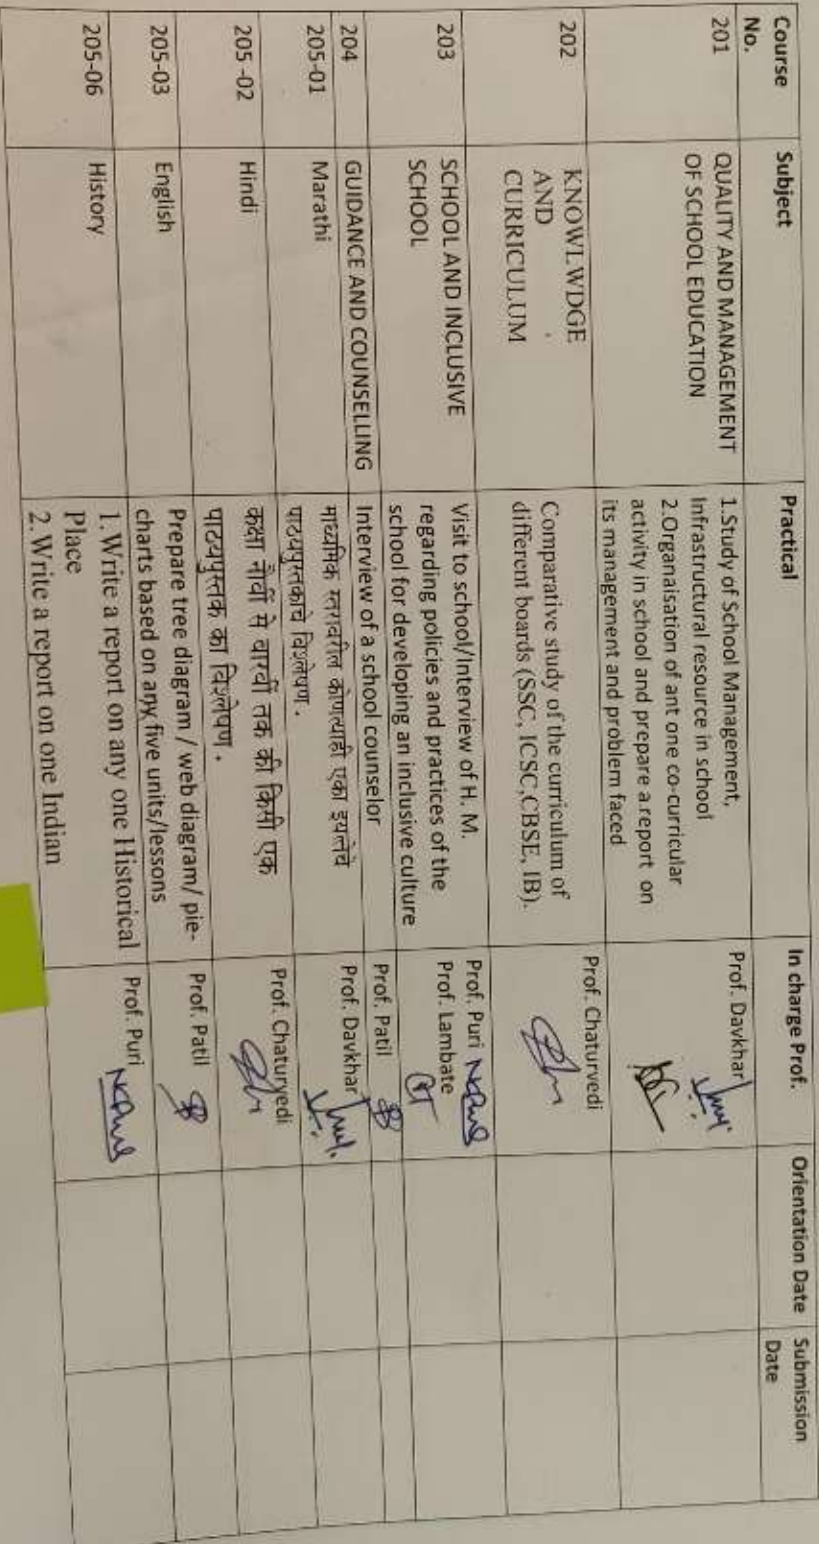 Course No. Subject Practical In charge Prof. Orientation Date Submission Date
201 QUALITY AND MANAGEMENT
OF SCHOOL EDUCATION
1.Study of School Management,
Infrastructural resource in school
2.Organaisation of ant one co-curricular
activity in school and prepare a report on
its management and problem faced
Prof. Davkhar
202 KNOWLWDGE
AND
CURRICULUM
Comparative study of the curriculum of
different boards (SSC, ICSC,CBSE, IB).
Prof. Chaturvedi
203 SCHOOL AND INCLUSIVE
SCHOOL
Visit to school/Interview of H. M.
regarding policies and practices of the
school for developing an inclusive culture
Prof. Puri
Prof. Lambate
204 GUIDANCE AND COUNSELLING Interview of a school counselor Prof. Patil
205-01 Marathi
माध्यमिक स्तरावरील कोणत्याही एका इयत्तेचे
पाठ्यपुस्तकाचे विश्लेषण.
Prof. Davkhar
205 -02 Hindi
कक्षा नौवीं से बारवीं तक की किसी एक
पाठ्यपुस्तक का विश्लेषण.
Prof. Chaturvedi
205-03 English
Prepare tree diagram / web diagram/ pie-
charts based on any five units/lessons
Prof. Patil
205-06 History
1. Write a report on any one Historical
Place
2. Write a report on one Indian
Prof. Puri